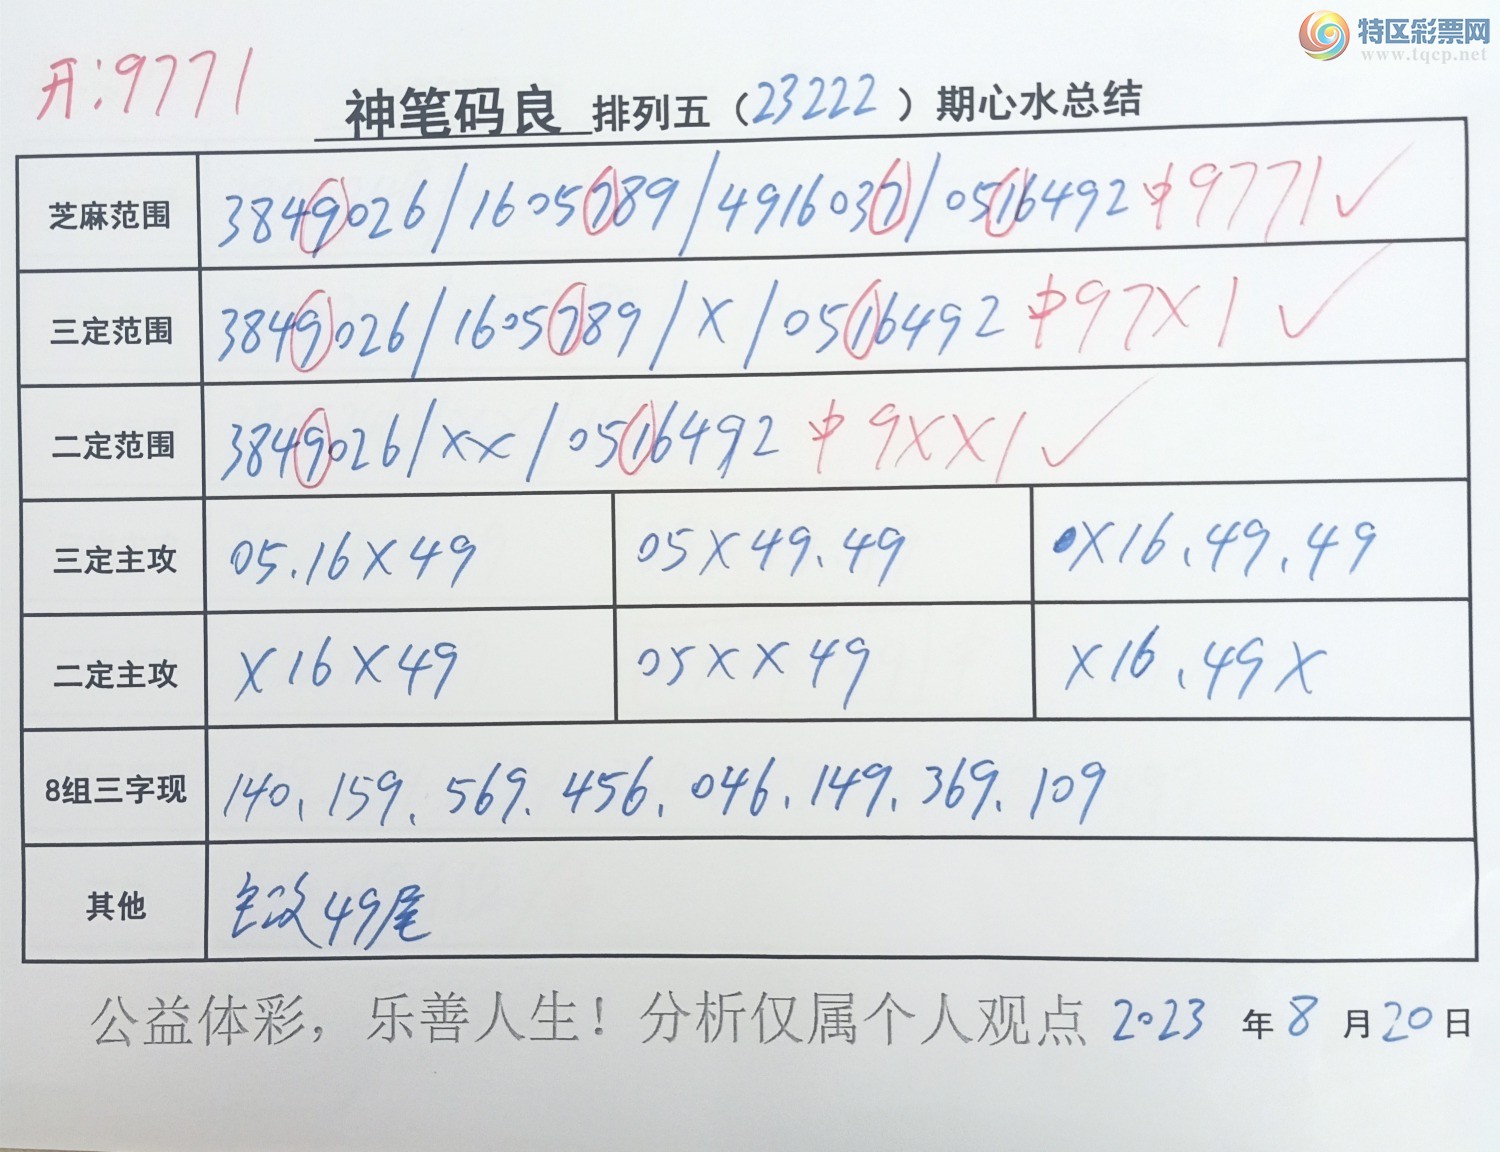 特区彩票网
www.tqcp.net
开:9771
神笔码良 排列五（23222）期心水总结
芝麻范围 3849026/1605789/4916037/0516492 中9771✓
三定范围 3849026/1605789/X/0516492 中97X1 ✓
二定范围 3849026/XX/0516492 中9XX1✓
三定主攻 05.16X49 05X49.49 X16、49、49
二定主攻 X16X49 05XX49 X16、49X
8组三字现 140、159、569、456、046、149、369、109
其他 主攻49尾
公益体彩，乐善人生！分析仅属个人观点 2023 年 8 月 20 日